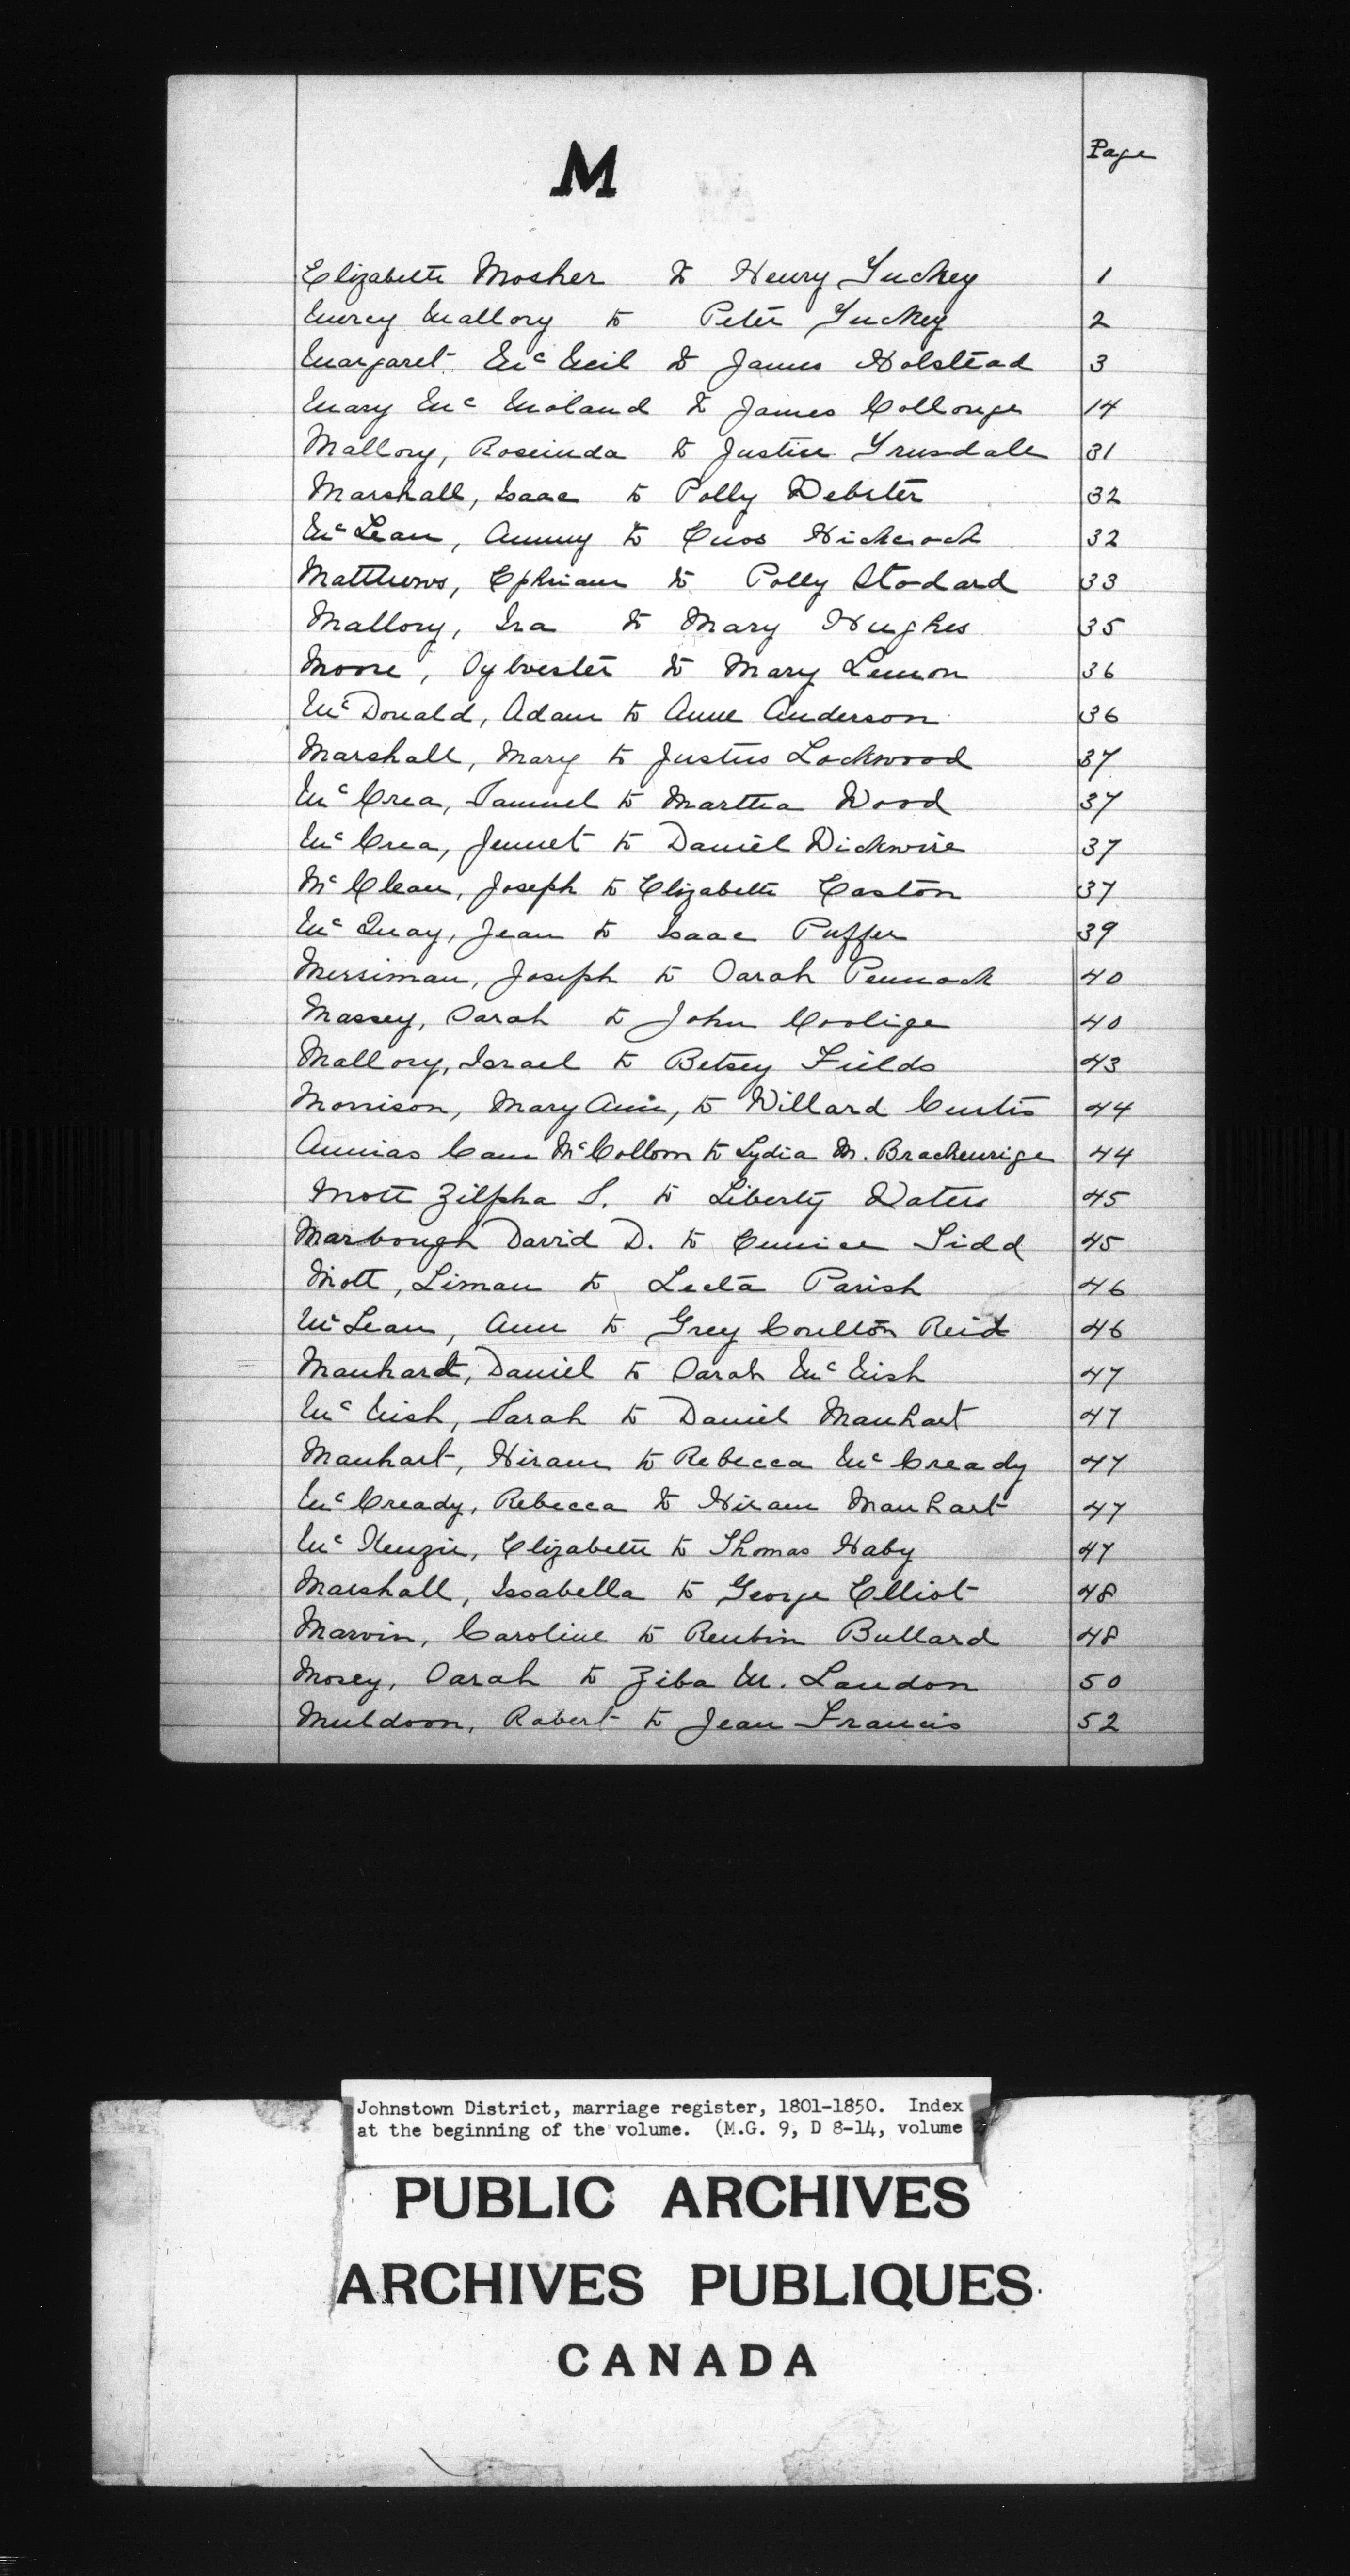 M
Page
Elizabeth Mosher to Henry Tuckey 1
Mercy Mallory to Peter Tuckey 2
Margaret McNeil to James Holstead 3
Mary Mc to James 14
Mallory, Rosinda to Justice Trusdale 31
Marshall, Isaac to Polly Webster 32
McLean, Ammy to Hickcock 32
Matthews, Ephriam to Polly Stodard 33
Mallory, Ira to Mary Hughes 35
Moore, Sylvester to Mary Lemon 36
McDonald, Adam to Anne Anderson 36
Marshall, Mary to Justus Lockwood 37
McCrea, Samuel to Martha Wood 37
McCrea, Jennet to Daniel Wickwire 37
McClean, Joseph to Elizabeth Easton 37
McQuay, Jean to Isaac Puffer 39
Merriman, Joseph to Sarah Pennock 40
Massey, Sarah to John Coolige 40
Mallory, Israel to Betsey Fields 43
Morrison, Mary Ann, to Willard Curtis 44
Annias Cam McCollom to Lydia M. Brackenrige 44
Mott Zilpha S. to Liberty Waters 45
Marbough David D. to Eunice Sidd 45
Mott, Liman to Lecta Parish 46
McLean, Ann to Grey Coulton Reid 46
Manhardt, Daniel to Sarah McNish 47
McNish, Sarah to Daniel Manhart 47
Manhart, Hiram to Rebecca McCready 47
McCready, Rebecca to Hiram Manhart 47
McKenzie, Elizabeth to Thomas Haby 47
Marshall, Issabella to George Elliot 48
Marvin, Caroline to Reubin Bullard 48
Mosey, Sarah to Ziba M. Landon 50
Muldoon, Robert to Jean Francis 52
Johnstown District, marriage register, 1801-1850. Index
at the beginning of the volume. (M.G. 9, D 8-14, volume
PUBLIC ARCHIVES
ARCHIVES PUBLIQUES
CANADA